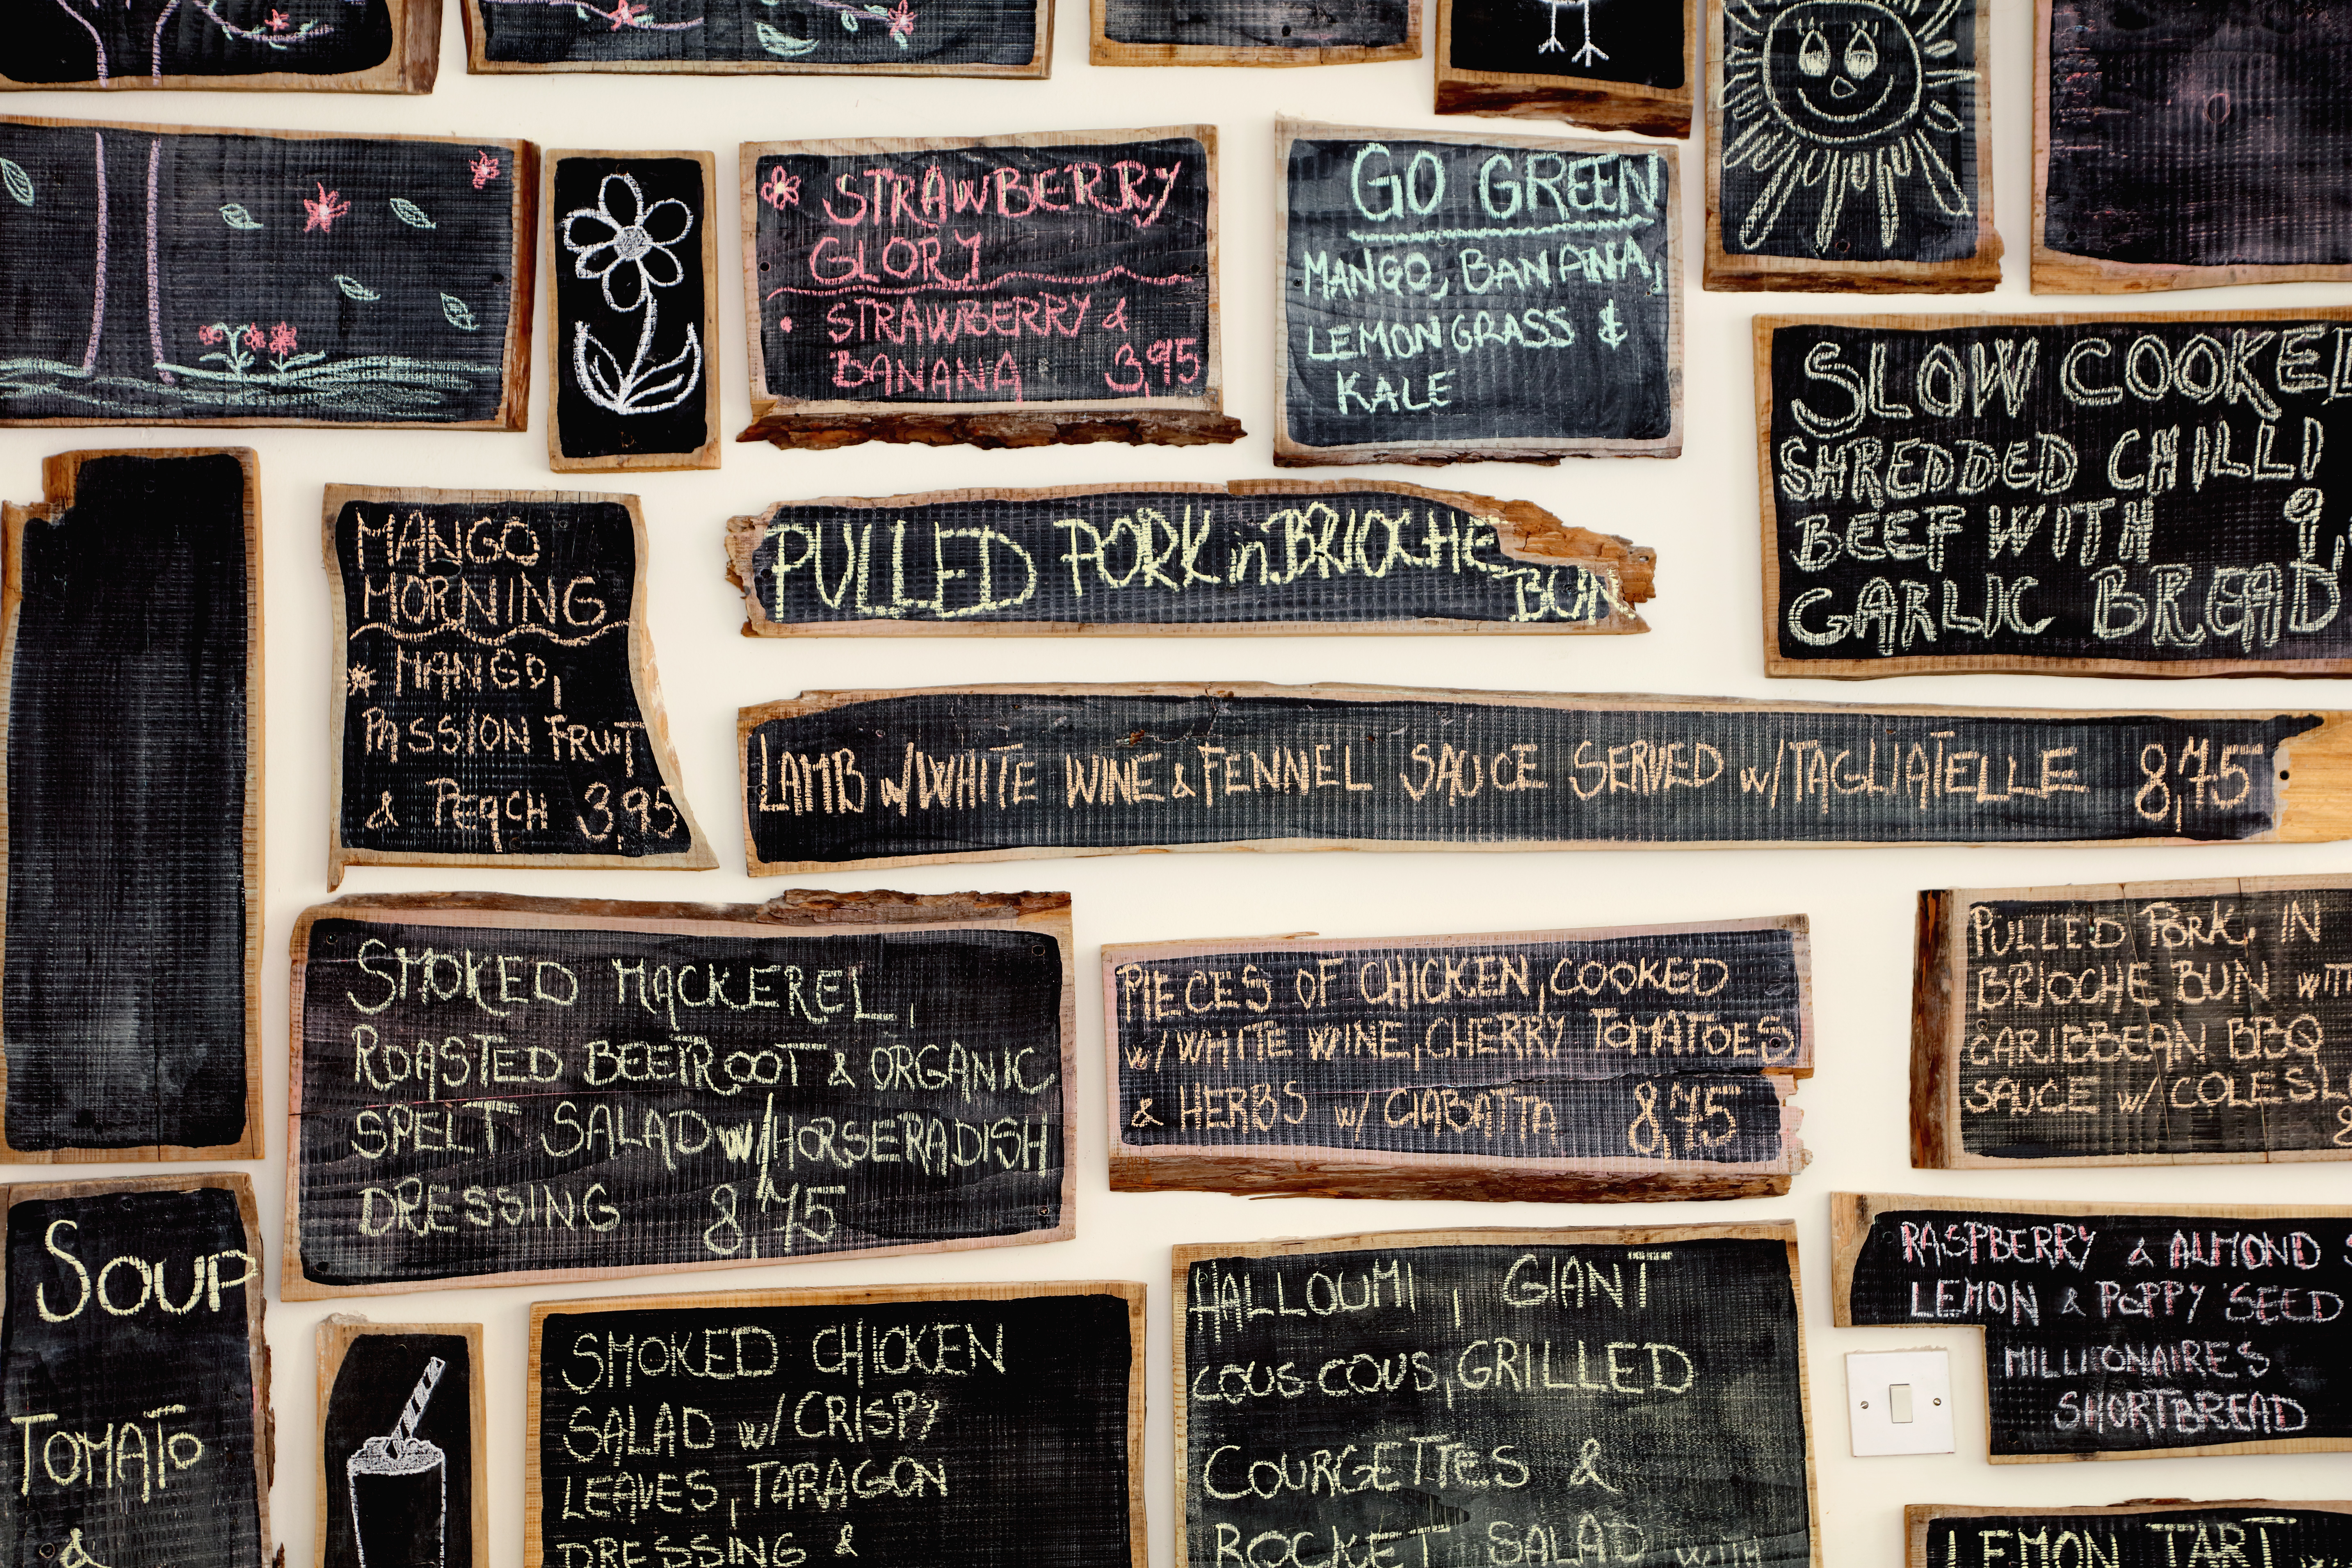 STRAWBERRY
GLORY
STRAWBERRY &
BANANA 3,95
GO GREEN
MANGO, BANANA,
LEMONGRASS &
KALE
SLOW COOKED
SHREDDED CHILLI
BEEF WITH 9,
GARLIC BREAD
MANGO
MORNING
MANGO,
PASSION FRUIT
& PEACH 3,95
PULLED PORK in BRIOCHE
BUN
LAMB w/WHITE WINE & FENNEL SAUCE SERVED w/TAGLIATELLE 8,75
SMOKED MACKEREL,
ROASTED BEETROOT & ORGANIC
SPELT SALAD w/HORSERADISH
DRESSING 8,75
PIECES OF CHICKEN, COOKED
w/WHITE WINE, CHERRY TOMATOES
& HERBS w/ CIABATTA 8,75
PULLED PORK IN
BRIOCHE BUN WITH
CARIBBEAN BBQ
SAUCE w/ COLESL
8
SOUP
TOMATO
&
SMOKED CHICKEN
SALAD w/CRISPY
LEAVES, TARAGON
DRESSING &
HALLOUMI, GIANT
COUS COUS, GRILLED
COURGETTES &
ROCKET SALAD WITH
RASPBERRY & ALMOND
LEMON & POPPY SEED
MILLIONAIRES
SHORTBREAD
LEMON TART